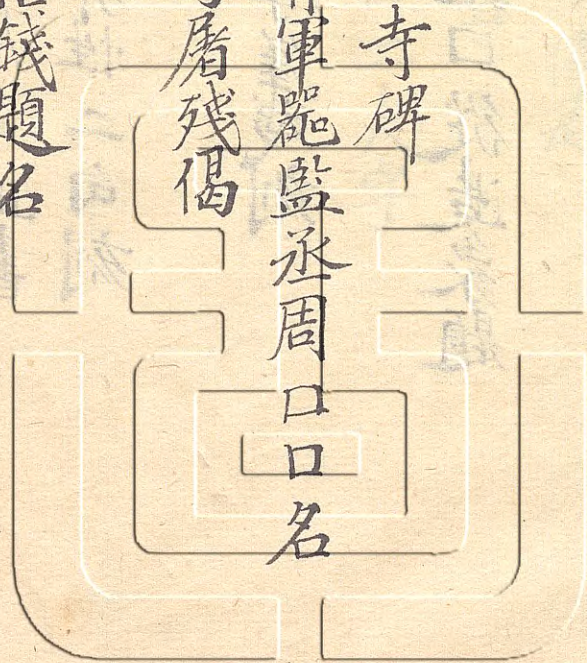 寺碑
軍器監丞周口口名
屠殘偈
錢題名